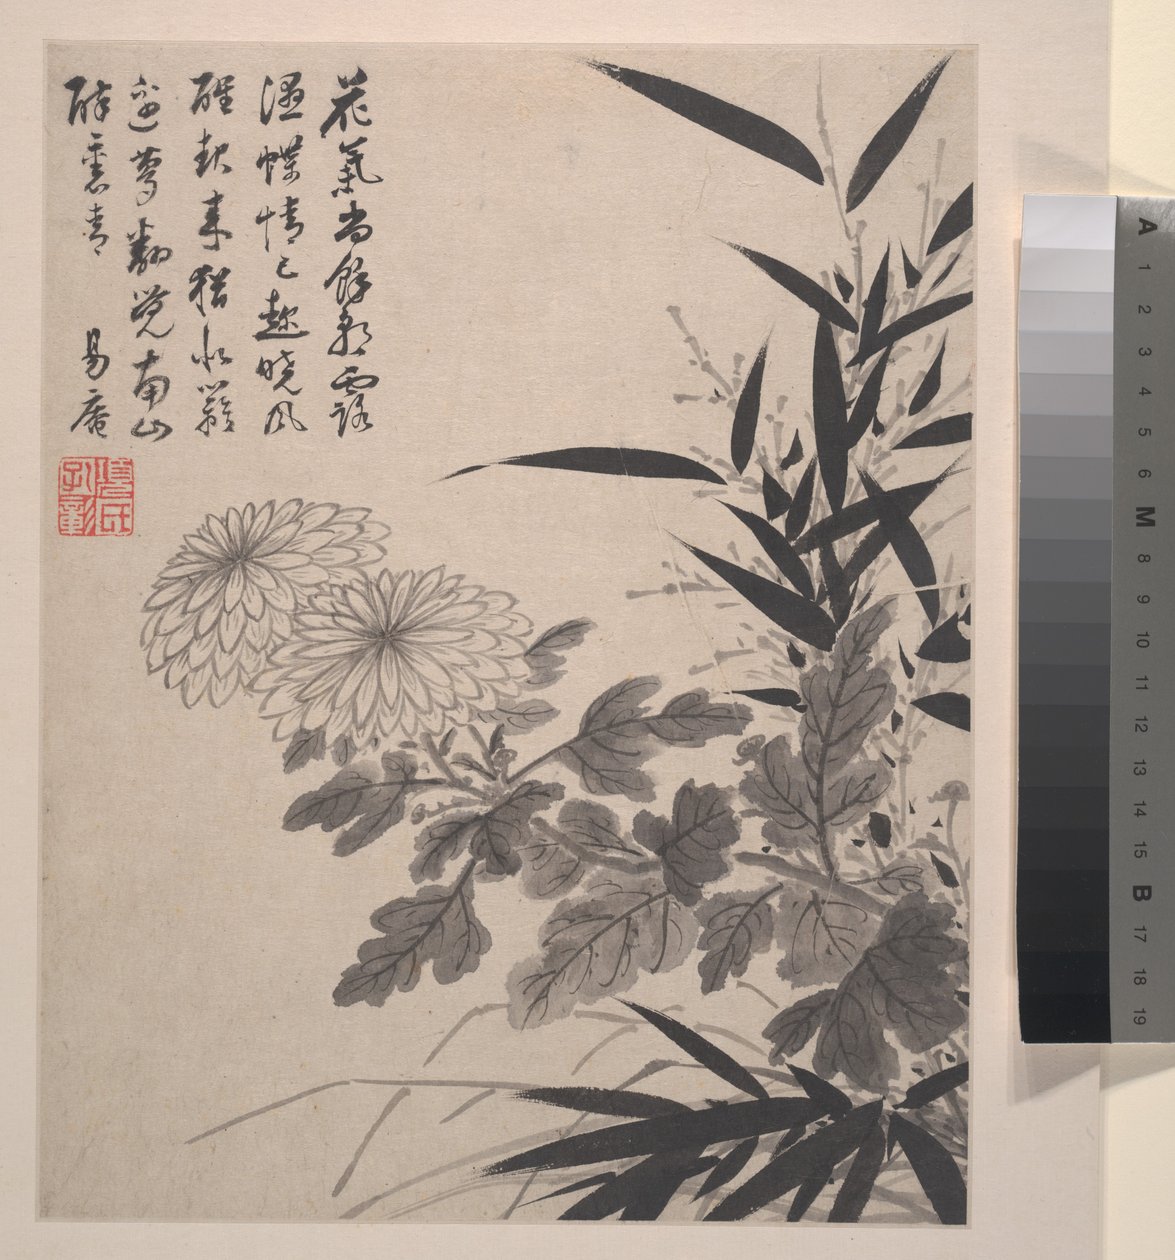 花氣尚餘朝露
濕蝶情已趂曉風
醒起來猶似籬
邊夢翻覺南山
醉裏青 易庵
A 1 2 3 4 5 6 M 8 9 10 11 12 13 14 15 B 17 18 19